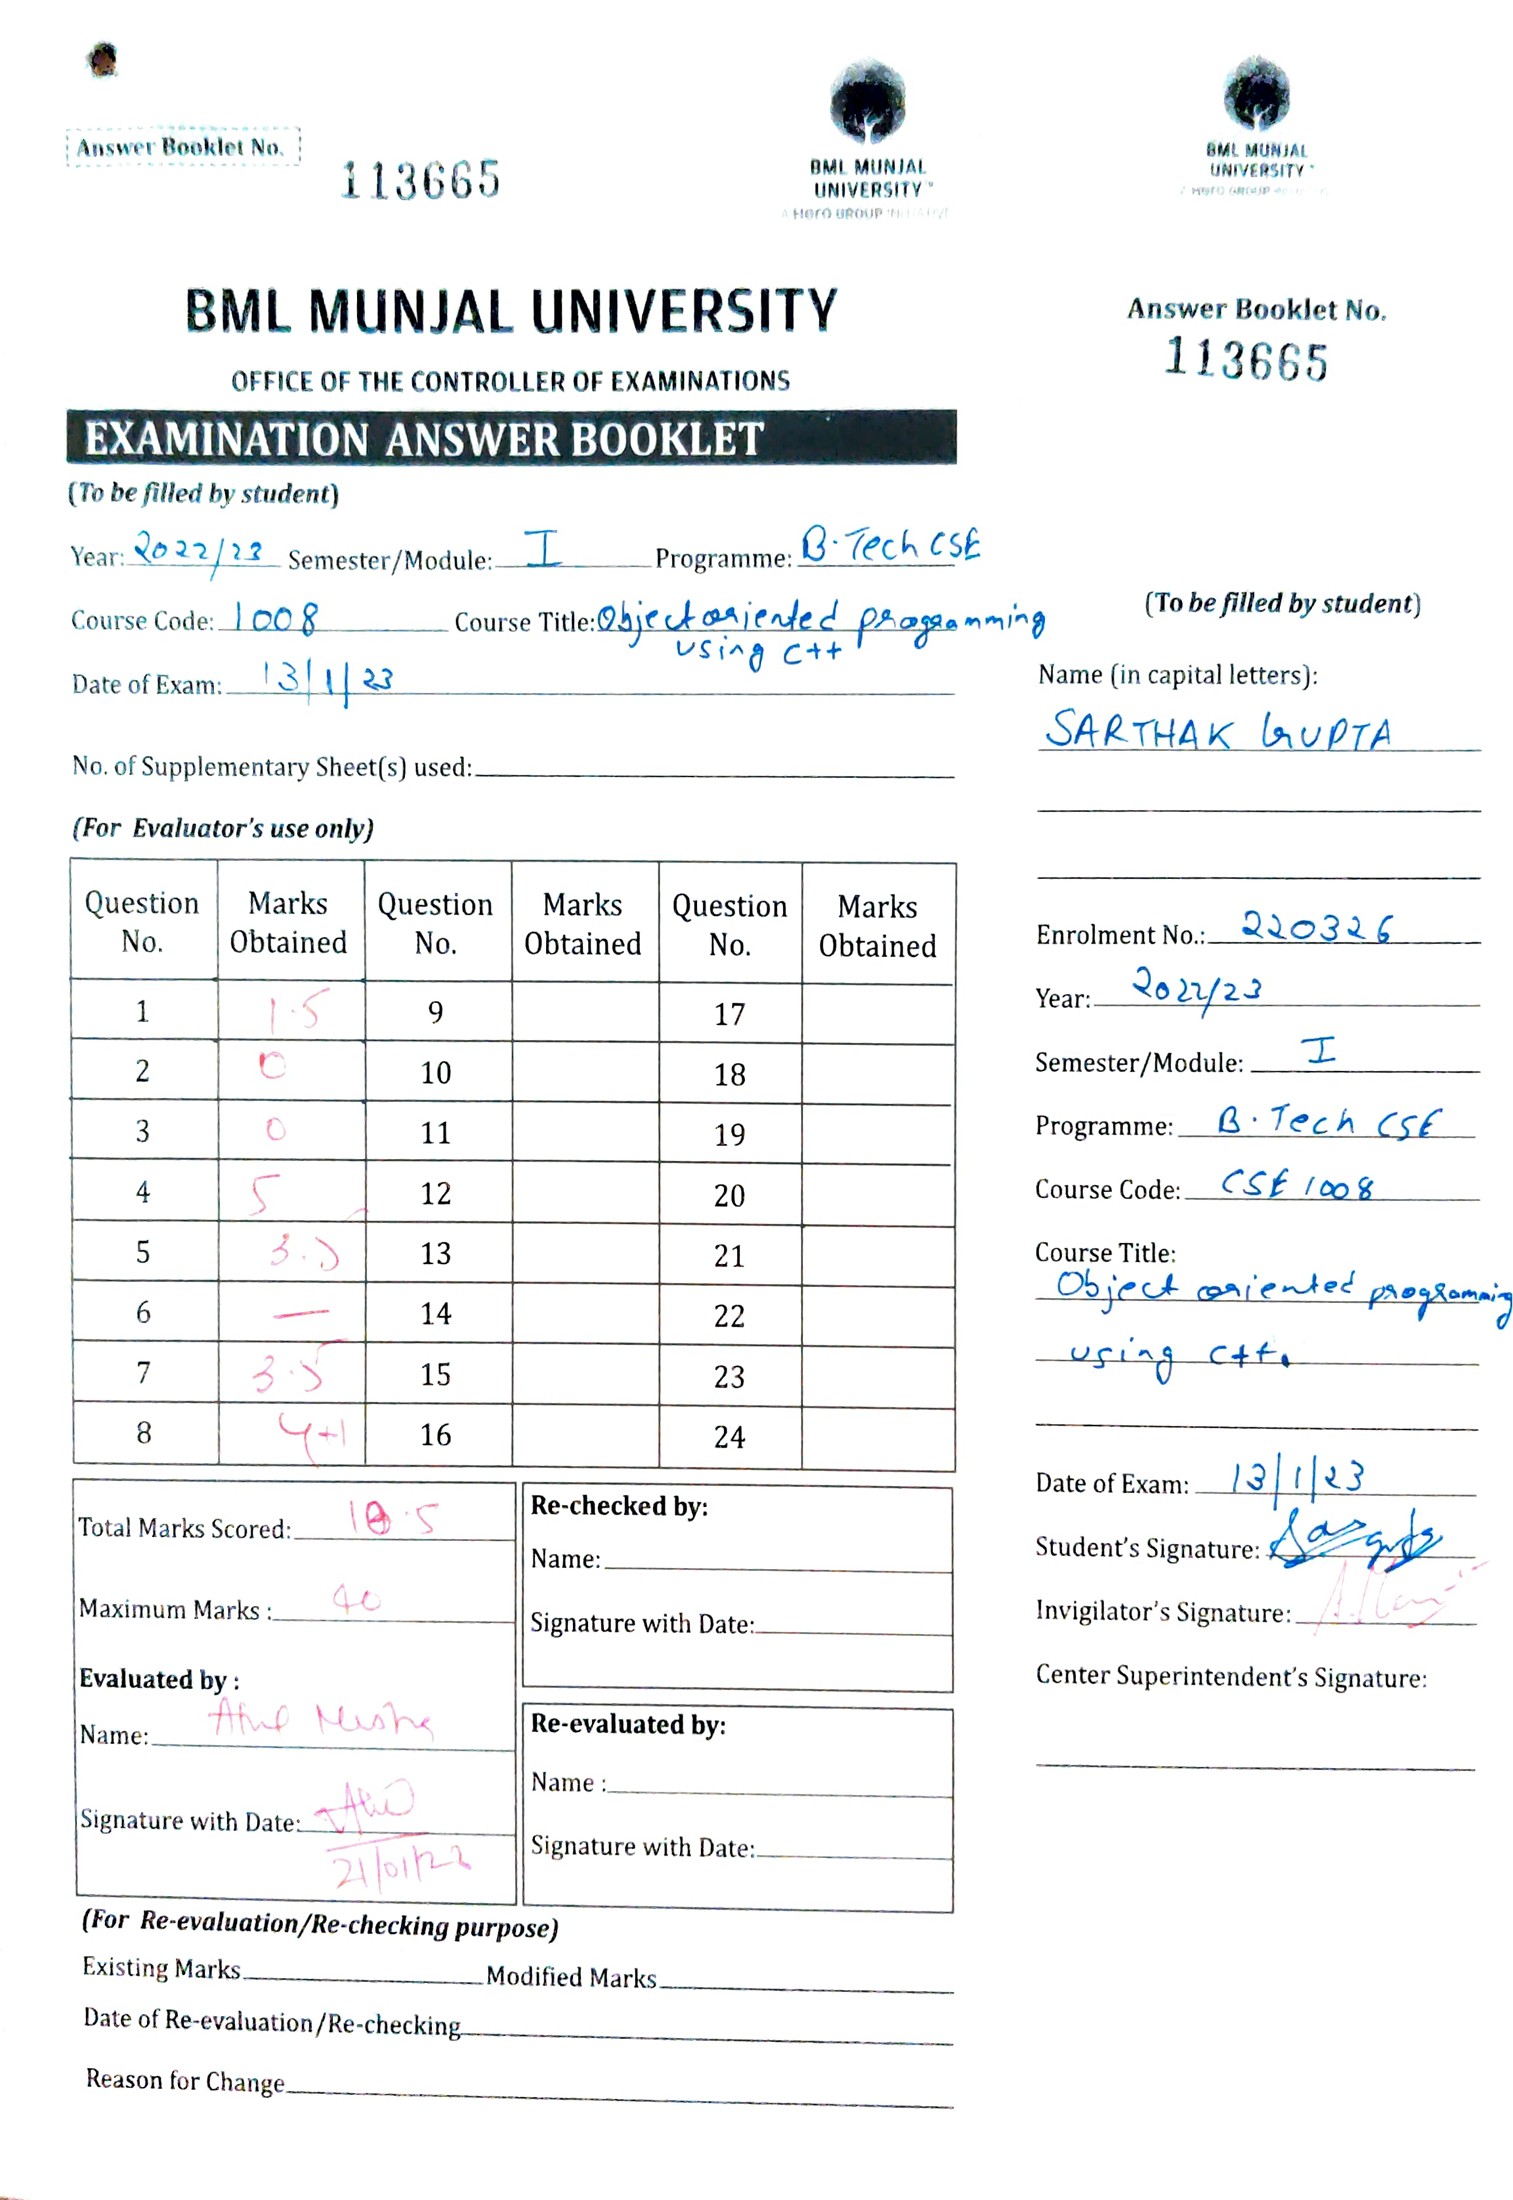 Answer Booklet No.
113665
BML MUNJAL
UNIVERSITY
A Hero GROUP INITIATIVE
BML MUNJAL UNIVERSITY
OFFICE OF THE CONTROLLER OF EXAMINATIONS
EXAMINATION ANSWER BOOKLET
(To be filled by student)
Year: 2022/23 Semester/Module: I Programme: B.Tech CSE
Course Code: 1008 Course Title: Object oriented programming
using C++
Date of Exam: 13/1/23
No. of Supplementary Sheet(s) used:
(For Evaluator's use only)
Question No. Marks Obtained Question No. Marks Obtained Question No. Marks Obtained
1 1.5 9 17
2 0 10 18
3 0 11 19
4 5 12 20
5 3.5 13 21
6 — 14 22
7 3.5 15 23
8 4+1 16 24
Total Marks Scored: 18.5
Maximum Marks : 40
Evaluated by :
Name:
Signature with Date:
Re-checked by:
Name:
Signature with Date:
Re-evaluated by:
Name :
Signature with Date:
(For Re-evaluation/Re-checking purpose)
Existing Marks Modified Marks
Date of Re-evaluation/Re-checking
Reason for Change
BML MUNJAL
UNIVERSITY
Answer Booklet No.
113665
(To be filled by student)
Name (in capital letters):
SARTHAK GUPTA
Enrolment No.: 220326
Year: 2022/23
Semester/Module: I
Programme: B.Tech CSE
Course Code: CSE 1008
Course Title:
Object oriented programming
using C++.
Date of Exam: 13/1/23
Student's Signature:
Invigilator's Signature:
Center Superintendent's Signature: